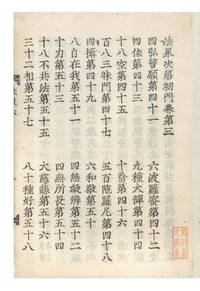 法界次第初門卷第三
四弘誓願第四十一 六波羅蜜第四十二
四依第四十三 九種大禪第四十四
十八空第四十五 十喻第四十六
百八三昧門第四十七 五百陀羅尼第四十八
四攝第四十九 六和敬第五十
八自在我第五十一 四無礙辯第五十二
十力第五十三 四無所畏第五十四
十八不共法第五十五 大慈悲第五十六
三十二相第五十七 八十種好第五十八